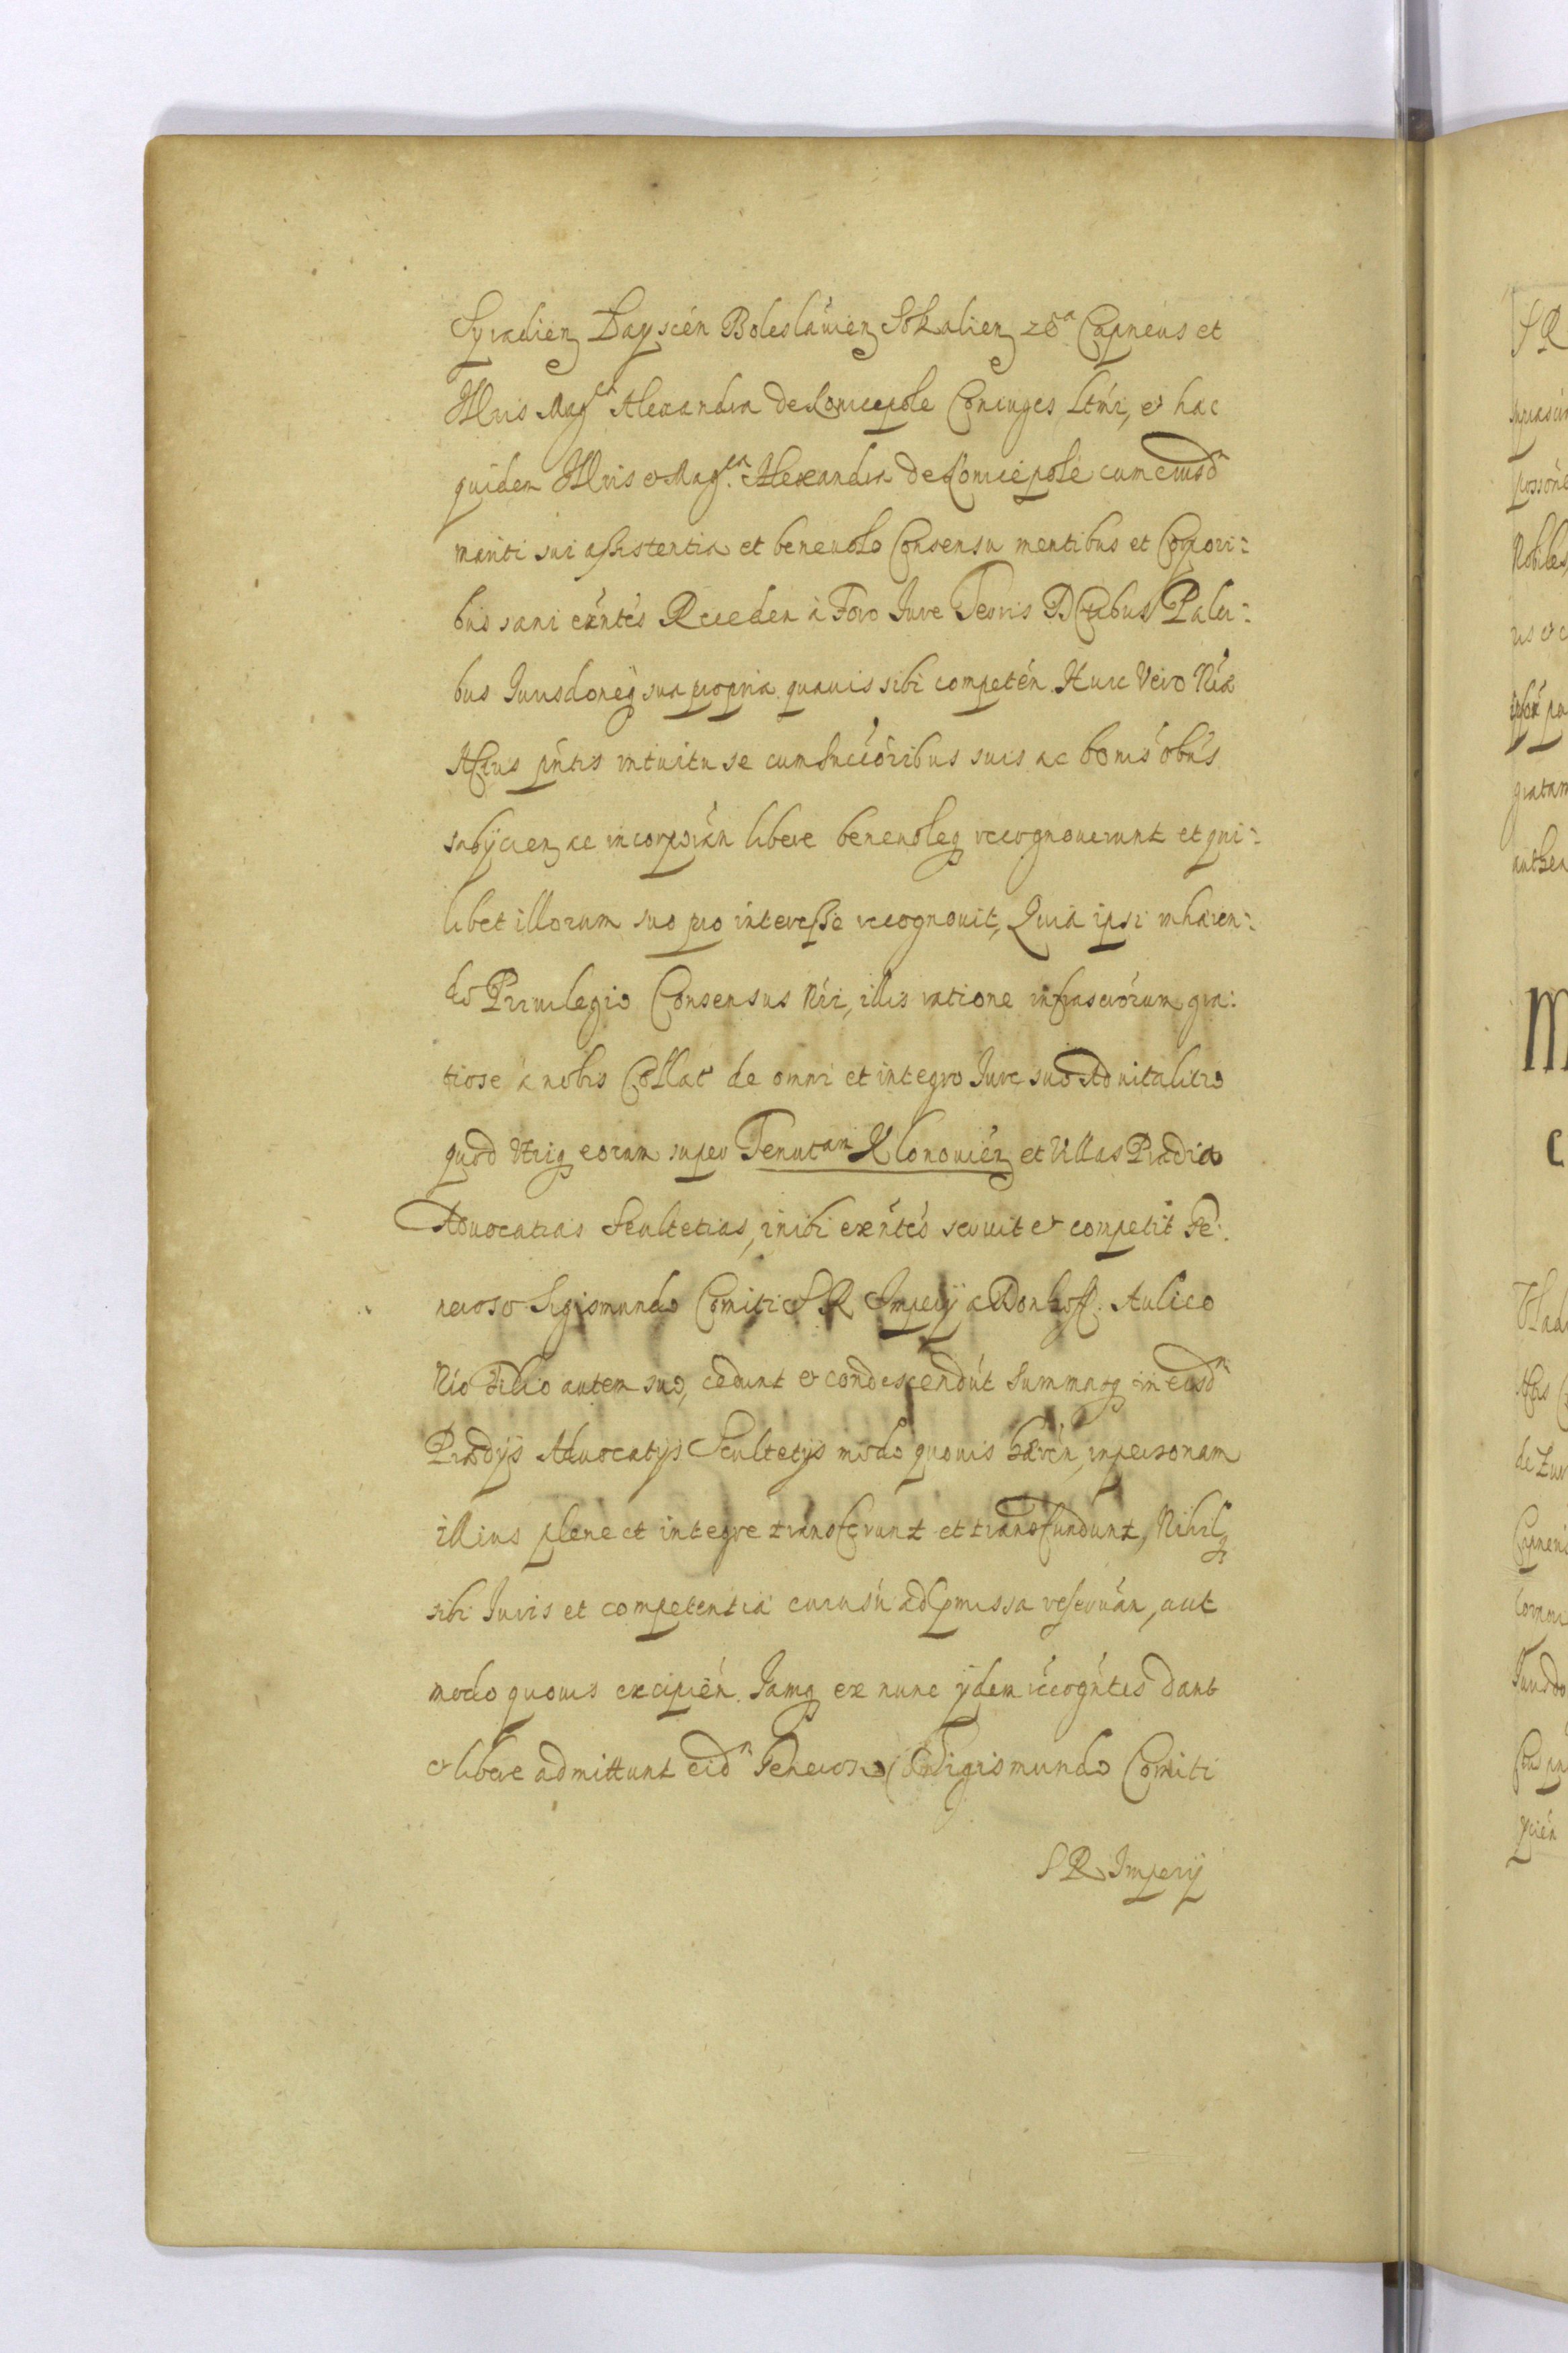 Syradien Bayscén Boleslauien Sokalien zō^a Capneus et
Illris Mag^ca Alexandra de Koniecpole Coniuges Ltmi, et hac
quidem Illris et Mag^ca Alexandra de Koniecpole cum eiusd^m
mariti sui assistentia et beneuolo Consensu mentibus et Corpori:
bus sani exntes Receden à Foro Iure Terris Dctabus Palu:
bus Jurisdoneq sua propria quauis sibi competén. Huic Vero Nrá
Actus pntis intuitu se cum Succóribus suis ac bonis obus
subijcien ac incorporán libere beneuoleq recognouerunt et qui:
libet illorum suo pro interesse recognouit, Quiá ipsi inhæren:
do Priuilegio Consensus Nri, illis ratione infrascrórum gra:
tiose à nobis Collat de omni et integro Iure suo Aduitalitio
quod Vtriq eorum super Tenut^am Klonouien et Villas Prædia
Aduocatias Scultetias, inibi exntes seruit et competit Ge:
neroso Sigismundo Comiti S R Imperij a Donhoff. Aulico
Nro Filio autem suo, cedunt et condescendút Summasq in eisd^m
Prædijs Aduocatijs Scultetijs modo quouis hærén, in personam
illius plene et integre transferunt et transfundunt, Nihilq
sibi Iuris et competentiá cuiusú ad pmissa reseruán, aut
modo quouis excipién. Jamq ex nunc ijdem recogntes dant
et libere admittunt eid^m Generoso Sigismundo Comiti
S R Imperij